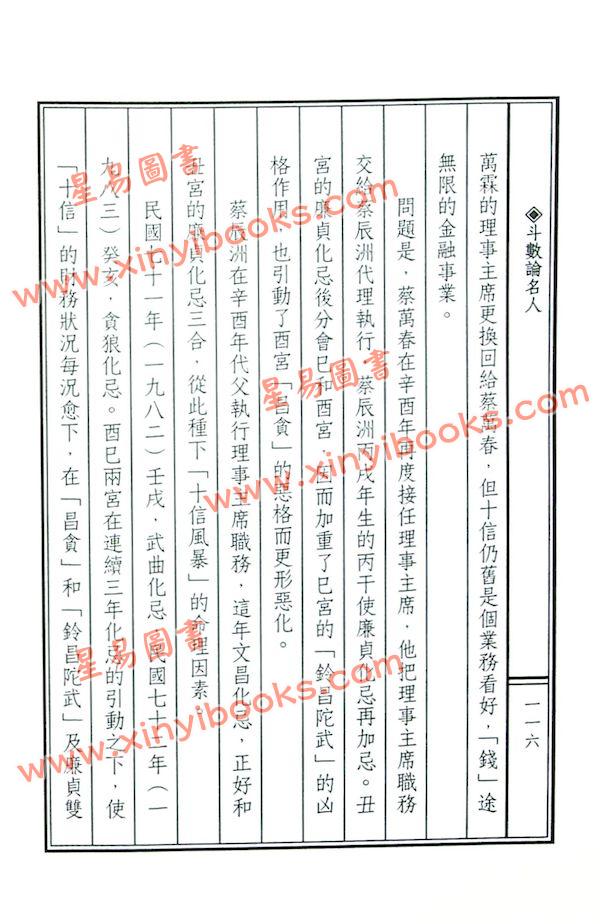 ◈斗數論名人
一一六
萬霖的理事主席更換回給蔡萬春，但十信仍舊是個業務看好，「錢」途
無限的金融事業。
問題是，蔡萬春在辛酉年再度接任理事主席，他把理事主席職務
交給蔡辰洲代理執行，蔡辰洲丙戌年生的丙干使廉貞化忌再加忌。丑
宮的廉貞化忌後分會巳和酉宮，因而加重了巳宮的「鈴昌陀武」的凶
格作用，也引動了酉宮「昌貪」的惡格而更形惡化。
蔡辰洲在辛酉年代父執行理事主席職務，這年文昌化忌，正好和
丑宮的廉貞化忌三合，從此種下「十信風暴」的命理因素
民國七十一年（一九八二）壬戌，武曲化忌 民國七十二年（一
九八三）癸亥，貪狼化忌。酉巳兩宮在連續三年化忌的引動之下，使
「十信」的財務狀況每況愈下，在「昌貪」和「鈴昌陀武」及廉貞雙
星易圖書
www.xinyibooks.com
星易圖書
www.xinyibooks.com
星易圖書
www.xinyibooks.com